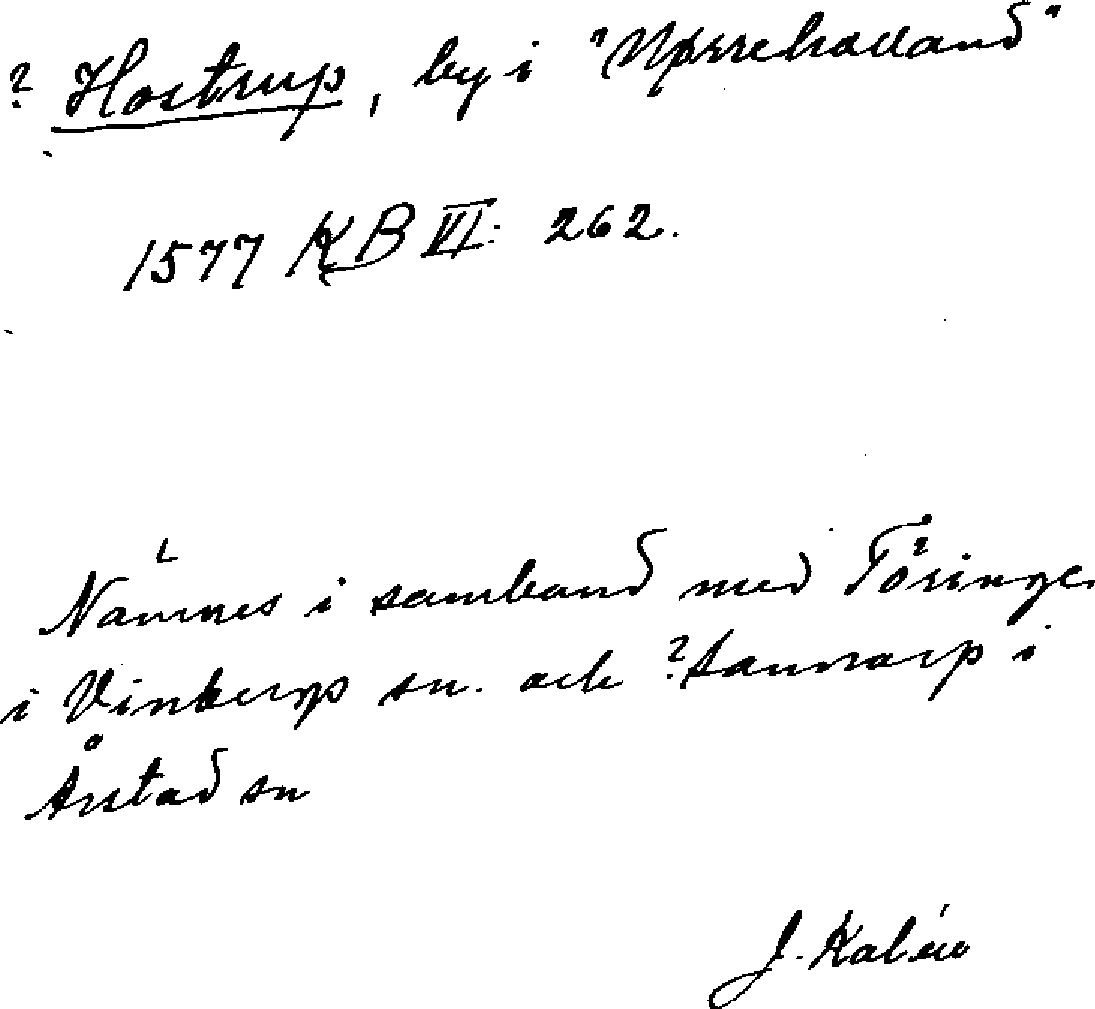 ? Hostrup, by i "Nørrehalland"
1577 KB VI: 262.
Nämnes i samband med Töringe
i Vinberg sn. och ? i
Årstad sn
J. Kalén